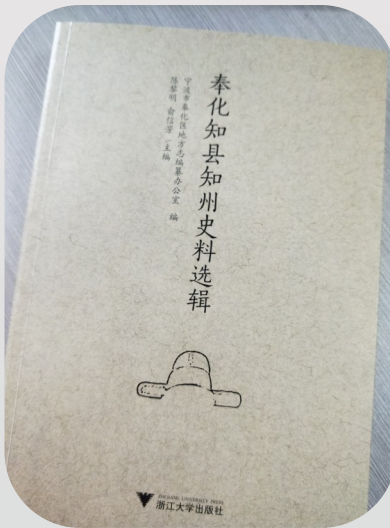 奉化知县知州史料选辑
宁波市奉化区地方志编纂办公室 编
陈黎明 俞信芳 主编
ZHEJIANG UNIVERSITY PRESS
浙江大学出版社